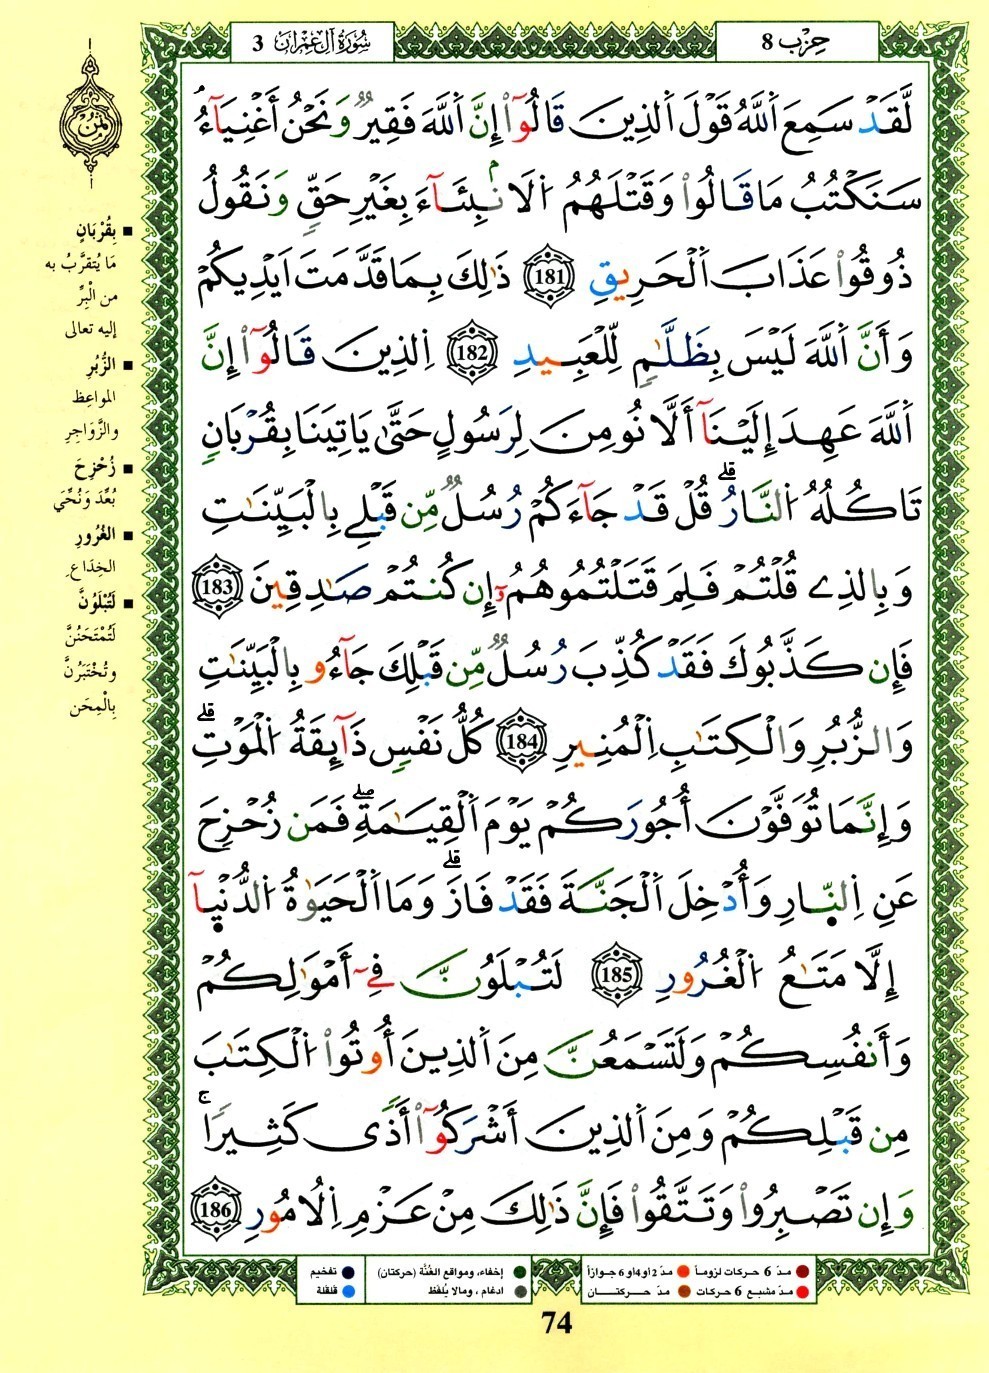 حزب 8
سورة آل عمران 3
لَّقَدْ سَمِعَ اَ۬للَّهُ قَوْلَ اَ۬لذِينَ قَالُوٓاْ إِنَّ اَ۬للَّهَ فَقِيرٞ وَنَحْنُ أَغْنِيَآءُۖ
سَنَكْتُبُ مَا قَالُواْ وَقَتْلَهُمُ اُ۬لَانۢبِئَآءَ بِغَيْرِ حَقّٖ وَنَقُولُ
ذُوقُواْ عَذَابَ اَ۬لْحَرِيقِ 181 ذَٰلِكَ بِمَا قَدَّمَتَ اَيْدِيكُمْ
وَأَنَّ اَ۬للَّهَ لَيْسَ بِظَلَّٰمٖ لِّلْعَبِيدِ 182 اِ۬لذِينَ قَالُوٓاْ إِنَّ
اَ۬للَّهَ عَهِدَ إِلَيْنَآ أَلَّا نُومِنَ لِرَسُولٍ حَتَّىٰ يَاتِيَنَا بِقُرْبَانٖ
تَاكُلُهُ اُ۬لنَّارُۖ قُلْ قَدْ جَآءَكُمْ رُسُلٞ مِّن قَبْلِے بِالْبَيِّنَٰتِ
وَبِالذِے قُلْتُمْ فَلِمَ قَتَلْتُمُوهُمُۥٓ إِن كُنتُمْ صَٰدِقِينَ 183
فَإِن كَذَّبُوكَ فَقَدْ كُذِّبَ رُسُلٞ مِّن قَبْلِكَ جَآءُو بِالْبَيِّنَٰتِ
وَالزُّبُرِ وَالْكِتَٰبِ اِ۬لْمُنِيرِ 184 كُلُّ نَفْسٖ ذَآئِقَةُ اُ۬لْمَوْتِۖ
وَإِنَّمَا تُوَفَّوْنَ أُجُورَكُمْ يَوْمَ اَ۬لْقِيَٰمَةِۖ فَمَن زُحْزِحَ
عَنِ اِ۬لنّ۪ارِ وَأُدْخِلَ اَ۬لْجَنَّةَ فَقَدْ فَازَۖ وَمَا اَ۬لْحَيَوٰةُ اُ۬لدُّنْي۪آ
إِلَّا مَتَٰعُ اُ۬لْغُرُورِ 185 لَتُبْلَوُنَّ فِےٓ أَمْوَٰلِكُمْ
وَأَنفُسِكُمْ وَلَتَسْمَعُنَّ مِنَ اَ۬لذِينَ أُوتُواْ اُ۬لْكِتَٰبَ
مِن قَبْلِكُمْ وَمِنَ اَ۬لذِينَ أَشْرَكُوٓاْ أَذىٗ كَثِيراٗۚ
وَإِن تَصْبِرُواْ وَتَتَّقُواْ فَإِنَّ ذَٰلِكَ مِنْ عَزْمِ اِ۬لُامُورِ 186
ثمن
■ بِقُرْبَانٍ
مَا يُتقرَّبُ به
من الْبِرِّ
إليه تعالى
■ الزُّبُرِ
المواعِظ
والزَّوَاجِرِ
■ زُحْزِحَ
بُعِّدَ وَنُحِّيَ
■ الغُرُورِ
الخِدَاعِ
■ لَتُبْلَوُنَّ
لَتُمْتَحَنُنَّ
وتُخْتَبَرُنَّ
بِالْمِحَن
مدّ 6 حركات لزوماً مدّ 2 او 4 او 6 جوازاً إخفاء، ومواقع الغُنَّة (حركتان) تفخيم
مدّ مشبع 6 حركات مدّ حركتــان ادغام ، ومالا يُلفَظ قلقلة
74